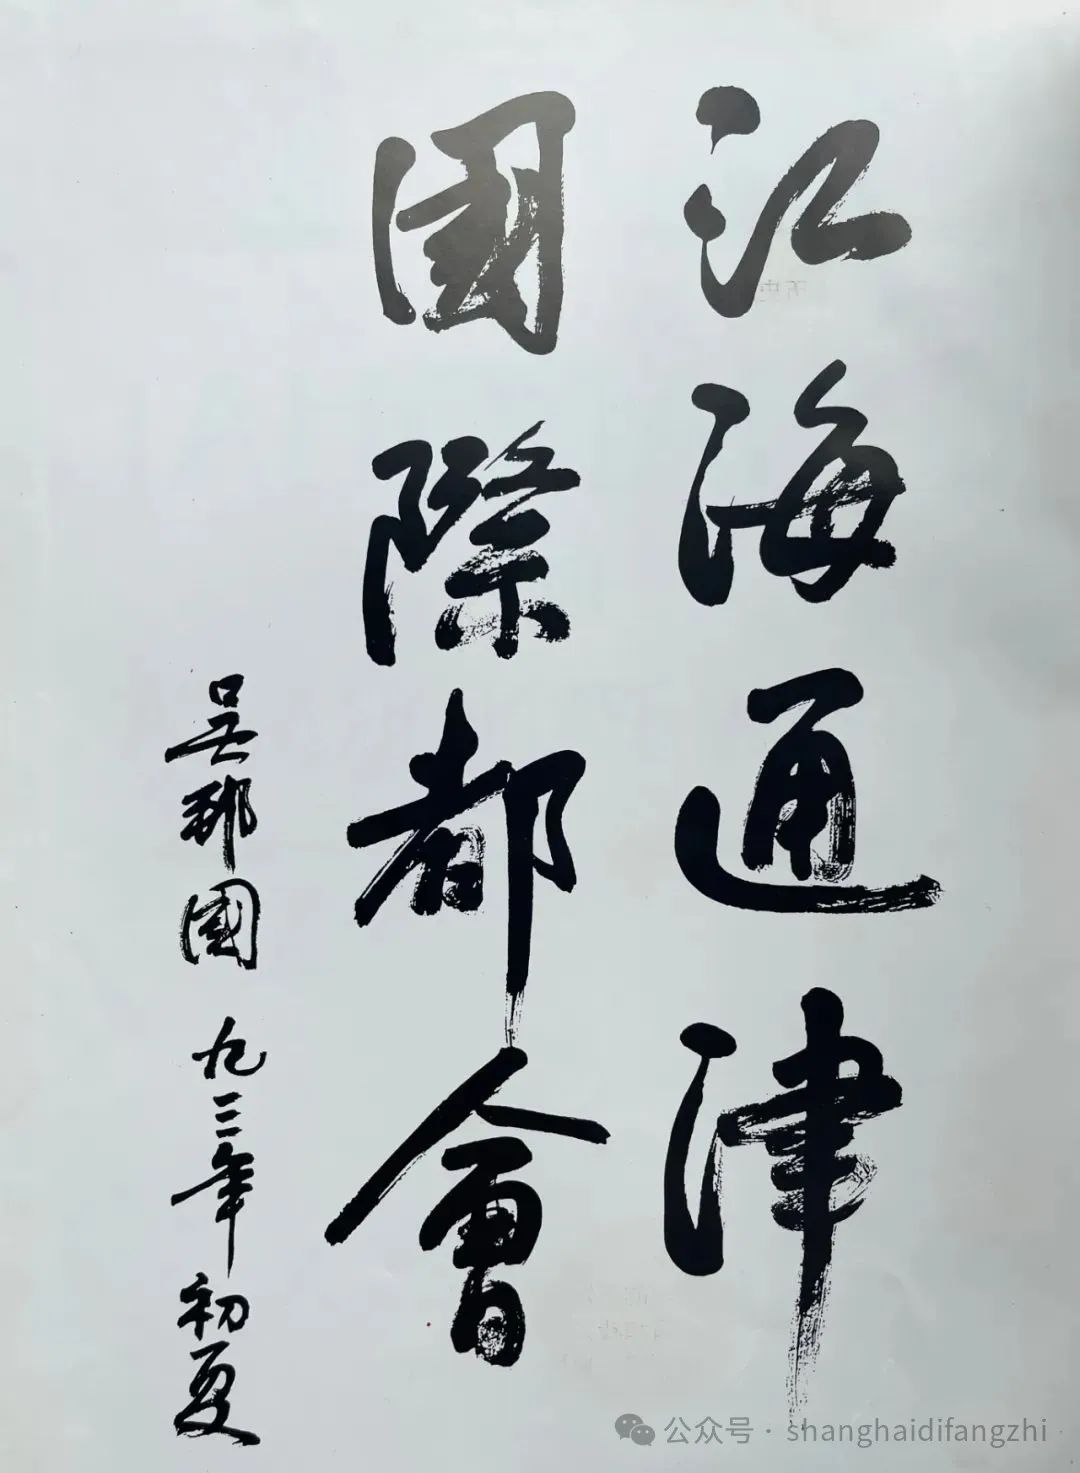 江海通津
國際都會
吳邦國 九三年初夏
公众号 · shanghaidifangzhi